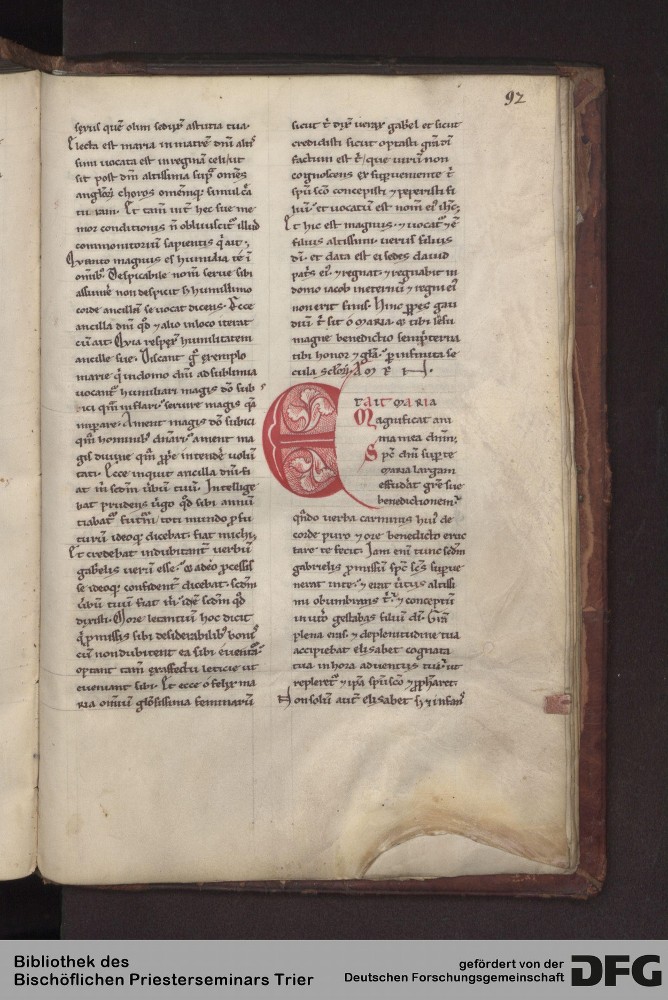 92
serus quē olim seduxͭ astutia tua.
Electa est maria in matrē dn̄i altis
simi uocata est in regina celi / ut
sit post dn̄m altissima sup̄ om̄s
anglōꝝ choros omēmq; simul cͣa
turam. Et tam̄ int̄ hec sue me
mor conditionis n̄ obliuiscit᷑ illud
commonitoriū sapientis q̇ ait.
Quanto magnus es humilia te ī
om̄ib;. Despicabile nom̄ serue sibi
assumē non despicit sꝫ humillimo
corde ancillā se uocat dicens. Ecce
ancilla dn̄i qd̓ ⁊ alio in loco iterat
cū ait. Quia respexͭ humilitatem
ancille sue. Discant gͦ exemplo
marie q̇ in domo dn̄i ad sublimia
uocant᷑ humiliari magis dō sub
ici qͣm inflari. seruire magis qͣ
impare. Ament magis dō subici
qͣm hominib; dn̄ari. ament ma
gis diuine qͣm ꝓpͥe intende᷑ uolū
tati. Ecce inquit ancilla dn̄i. fi
at m̄ scd̄m u̇bum tuū. Intellige
bat prudens uͥgo qd̓ sibi annū
tiabat᷑ futurū toti mundo ꝓfu
turū ideoq; dicebat. fiat michi.
Et credebat indubitant̄ uerbū
gabrielis uerū esse.
se ideoq; confident̄ dicebat. scd̄m
u̇bū tuū fiat m̄. id est scd̄m qd̓
dixisti. More letantiū hoc dicit
q̇ ꝓmissis sibi desiderabilib; bonis
cū non dubitent ea sibi euentͣa.
optant tam̄ ex affectu leticie ut
eueniant sibi. Et ecce ō felix ma
ria omniū glōsissima feminarū
sicut t̄ dixͭ uerax gabͥel et sicut
credidisti sicut optasti grā dī
factum est t̄ / que uirū non
cognoscens ex supueniente t̄
spū scō concepisti ⁊ peperisti fi
liū. et uocatū est nom̄ eiꝰ ihc̄.
Et hic est magnus. ⁊ uocat᷑ ⁊ ē
filius altissimi. uerus filius
dī. et data est ei sedes dauid
patͥs eiꝰ. ⁊ regnat. ⁊ regnabit in
domo iacob in eternū. ⁊ regni eiꝰ
non erit finis. Hinc ꝓpes gau
diū t̄ sit ō MARIA. tibi
magne benedictio sempiterna
tibi honor ⁊ glā. ꝑ infinita se
cula sclōꝝ. AMEN.
ET AIT MARIA
Magnificat ani
ma mea dn̄m.
Spc̄ dn̄i sup te
maria largam
effudit grē sue
benedictionem.
qn̄do uerba carminis huiꝰ de
corde puro ⁊ ore benedicto eruc
tare te fecit. Iam eni tunc scd̄m
gabrielis ꝓmissū spc̄ scs̄ supue
nerat in te. ⁊ erat u̇tus altissi
mi obumbrans t̄. ⁊ conceptū
in ut̄o gestabas filiū dī. Grā
plena eras. ⁊ de plenitudine tua
accipiebat elisabet cognata
tua in hora aduentus tui. ut
repleret᷑ ⁊ ipa spū scō ⁊ ꝓpharet.
Non solū aut̄ elisabet sꝫ ⁊ infans
Bibliothek des
Bischöflichen Priesterseminars Trier
gefördert von der
Deutschen Forschungsgemeinschaft
DFG